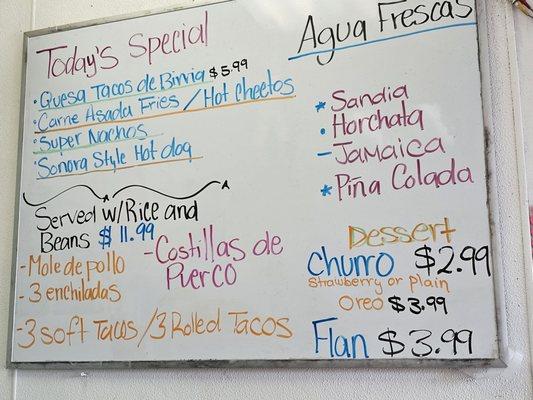 Today's Special
• Quesa Tacos de Birria $5.99
• Carne Asada Fries / Hot Cheetos
• Super Nachos
• Sonora Style Hot dog
Served w/Rice and
Beans $11.99
- Mole de pollo
- 3 enchiladas
- Costillas de
Puerco
- 3 soft Tacos / 3 Rolled Tacos
Agua Frescas
* Sandia
• Horchata
- Jamaica
* Piña Colada
Dessert
Churro $2.99
Strawberry or plain
Oreo $3.99
Flan $3.99